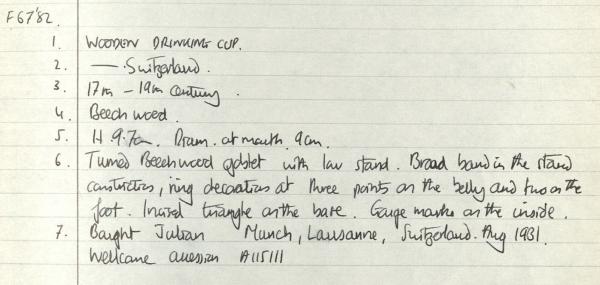 F67'82.
1. WOODEN DRINKING CUP.
2. —— Switzerland.
3. 17th – 19th century.
4. Beech wood.
5. H. 9.7cm. Diam. at mouth 9cm.
6. Turned Beechwood goblet with low stand. Broad band in the stand
construction, ring decoration at three points on the belly and two on the
foot. Incised triangle on the base. Gauge marks on the inside.
7. Bought Julian Munch, Lausanne, Switzerland. Aug 1931.
Wellcome accession A115111